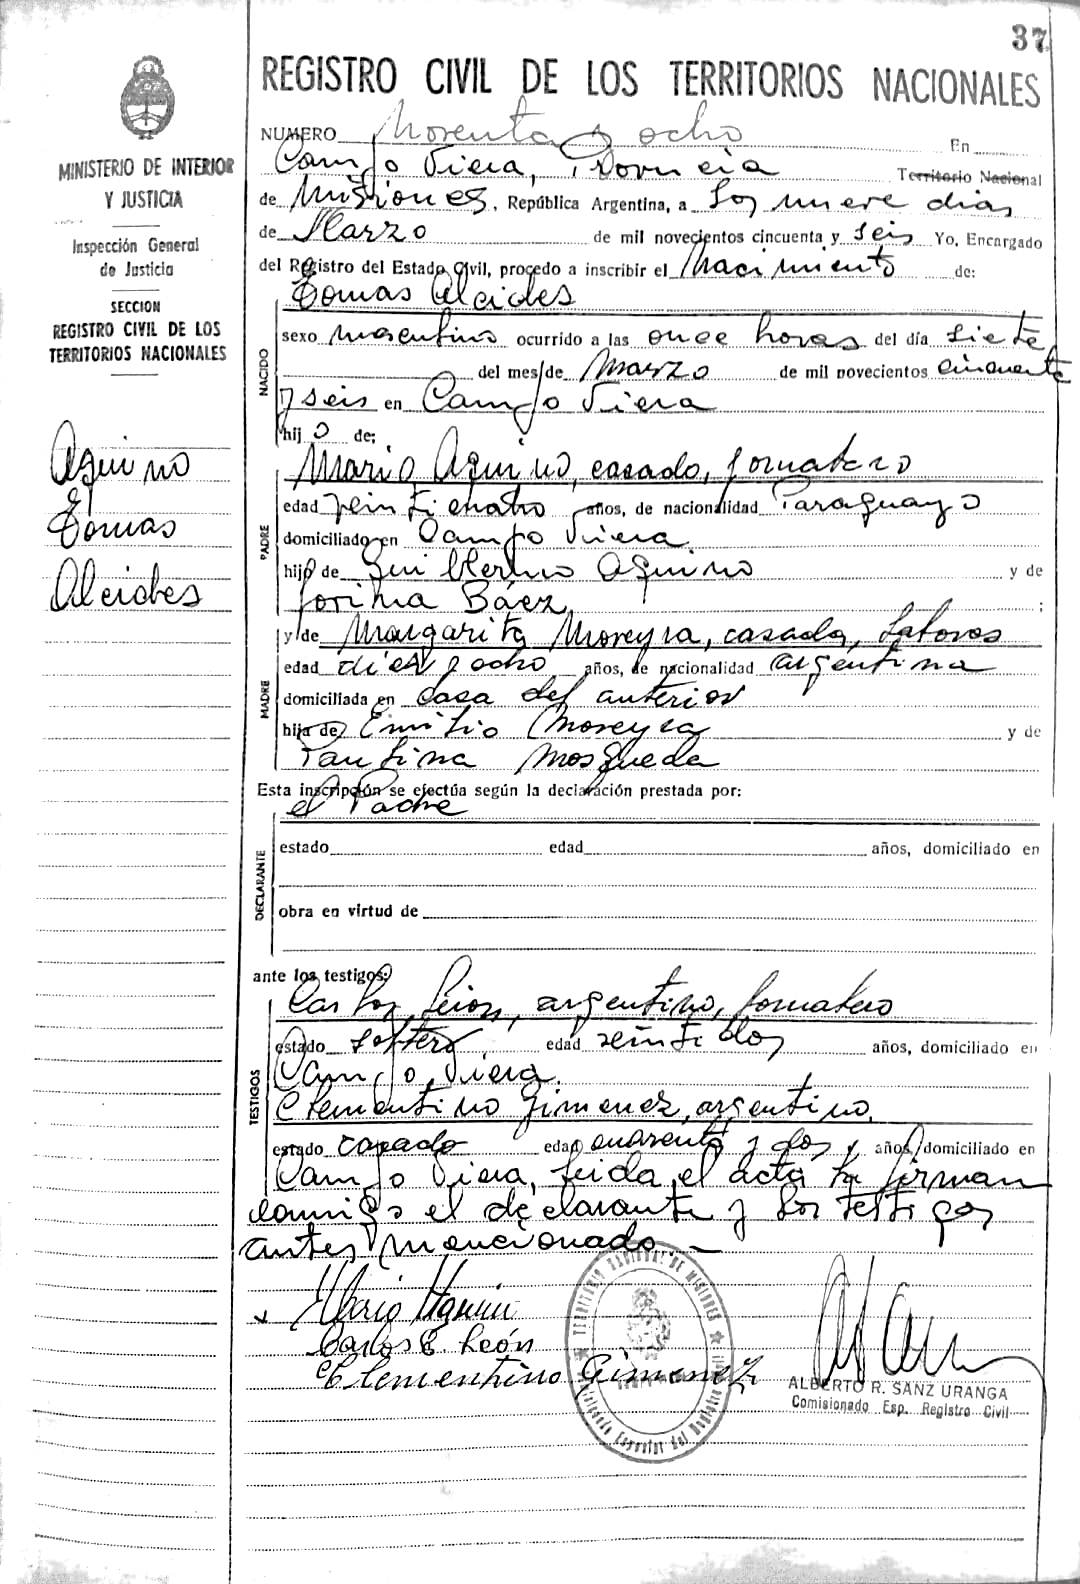 37
REGISTRO CIVIL DE LOS TERRITORIOS NACIONALES
MINISTERIO DE INTERIOR
Y JUSTICIA
Inspección General
de Justicia
SECCION
REGISTRO CIVIL DE LOS
TERRITORIOS NACIONALES
Aquino
Tomas
Alcides
NUMERO Noventa y ocho En
Campo Viera, Provincia Territorio Nacional
de Misiones, República Argentina, a los nueve dias
de Marzo de mil novecientos cincuenta y seis Yo, Encargado
del Registro del Estado Civil, procedo a inscribir el Nacimiento de:
Tomas Alcides
NACIDO
sexo masculino ocurrido a las once horas del día siete
del mes de Marzo de mil novecientos cincuenta
y seis en Campo Viera
hijo de:
PADRE
Mario Aquino, casado, jornalero
edad veinticuatro años, de nacionalidad Paraguayo
domiciliado en Campo Viera
hijo de Guillermo Aquino y de
Báez ;
MADRE
y de Margarita Moreyra, casada, labores
edad diez y ocho años, de nacionalidad argentina
domiciliada en casa del anterior
hija de Emilio Moreyra y de
Paulina Mosqueda
Esta inscripción se efectúa según la declaración prestada por:
el Padre
DECLARANTE
estado edad años, domiciliado en
obra en virtud de
ante los testigos:
TESTIGOS
Carlos León, argentino, jornalero
estado soltero, edad veintidos años, domiciliado en
Campo Viera.
Clementino Gimenez, argentino,
estado casado edad cuarenta y dos años, domiciliado en
Campo Viera, leida el acta la firman
conmigo el declarante y los testigos
antes mencionado -
x Mario Aquino
Carlos E. León
Clementino Gimenez
TERRITORIO NACIONAL DE MISIONES
ALBERTO R. SANZ URANGA
Comisionado Esp. Registro Civil